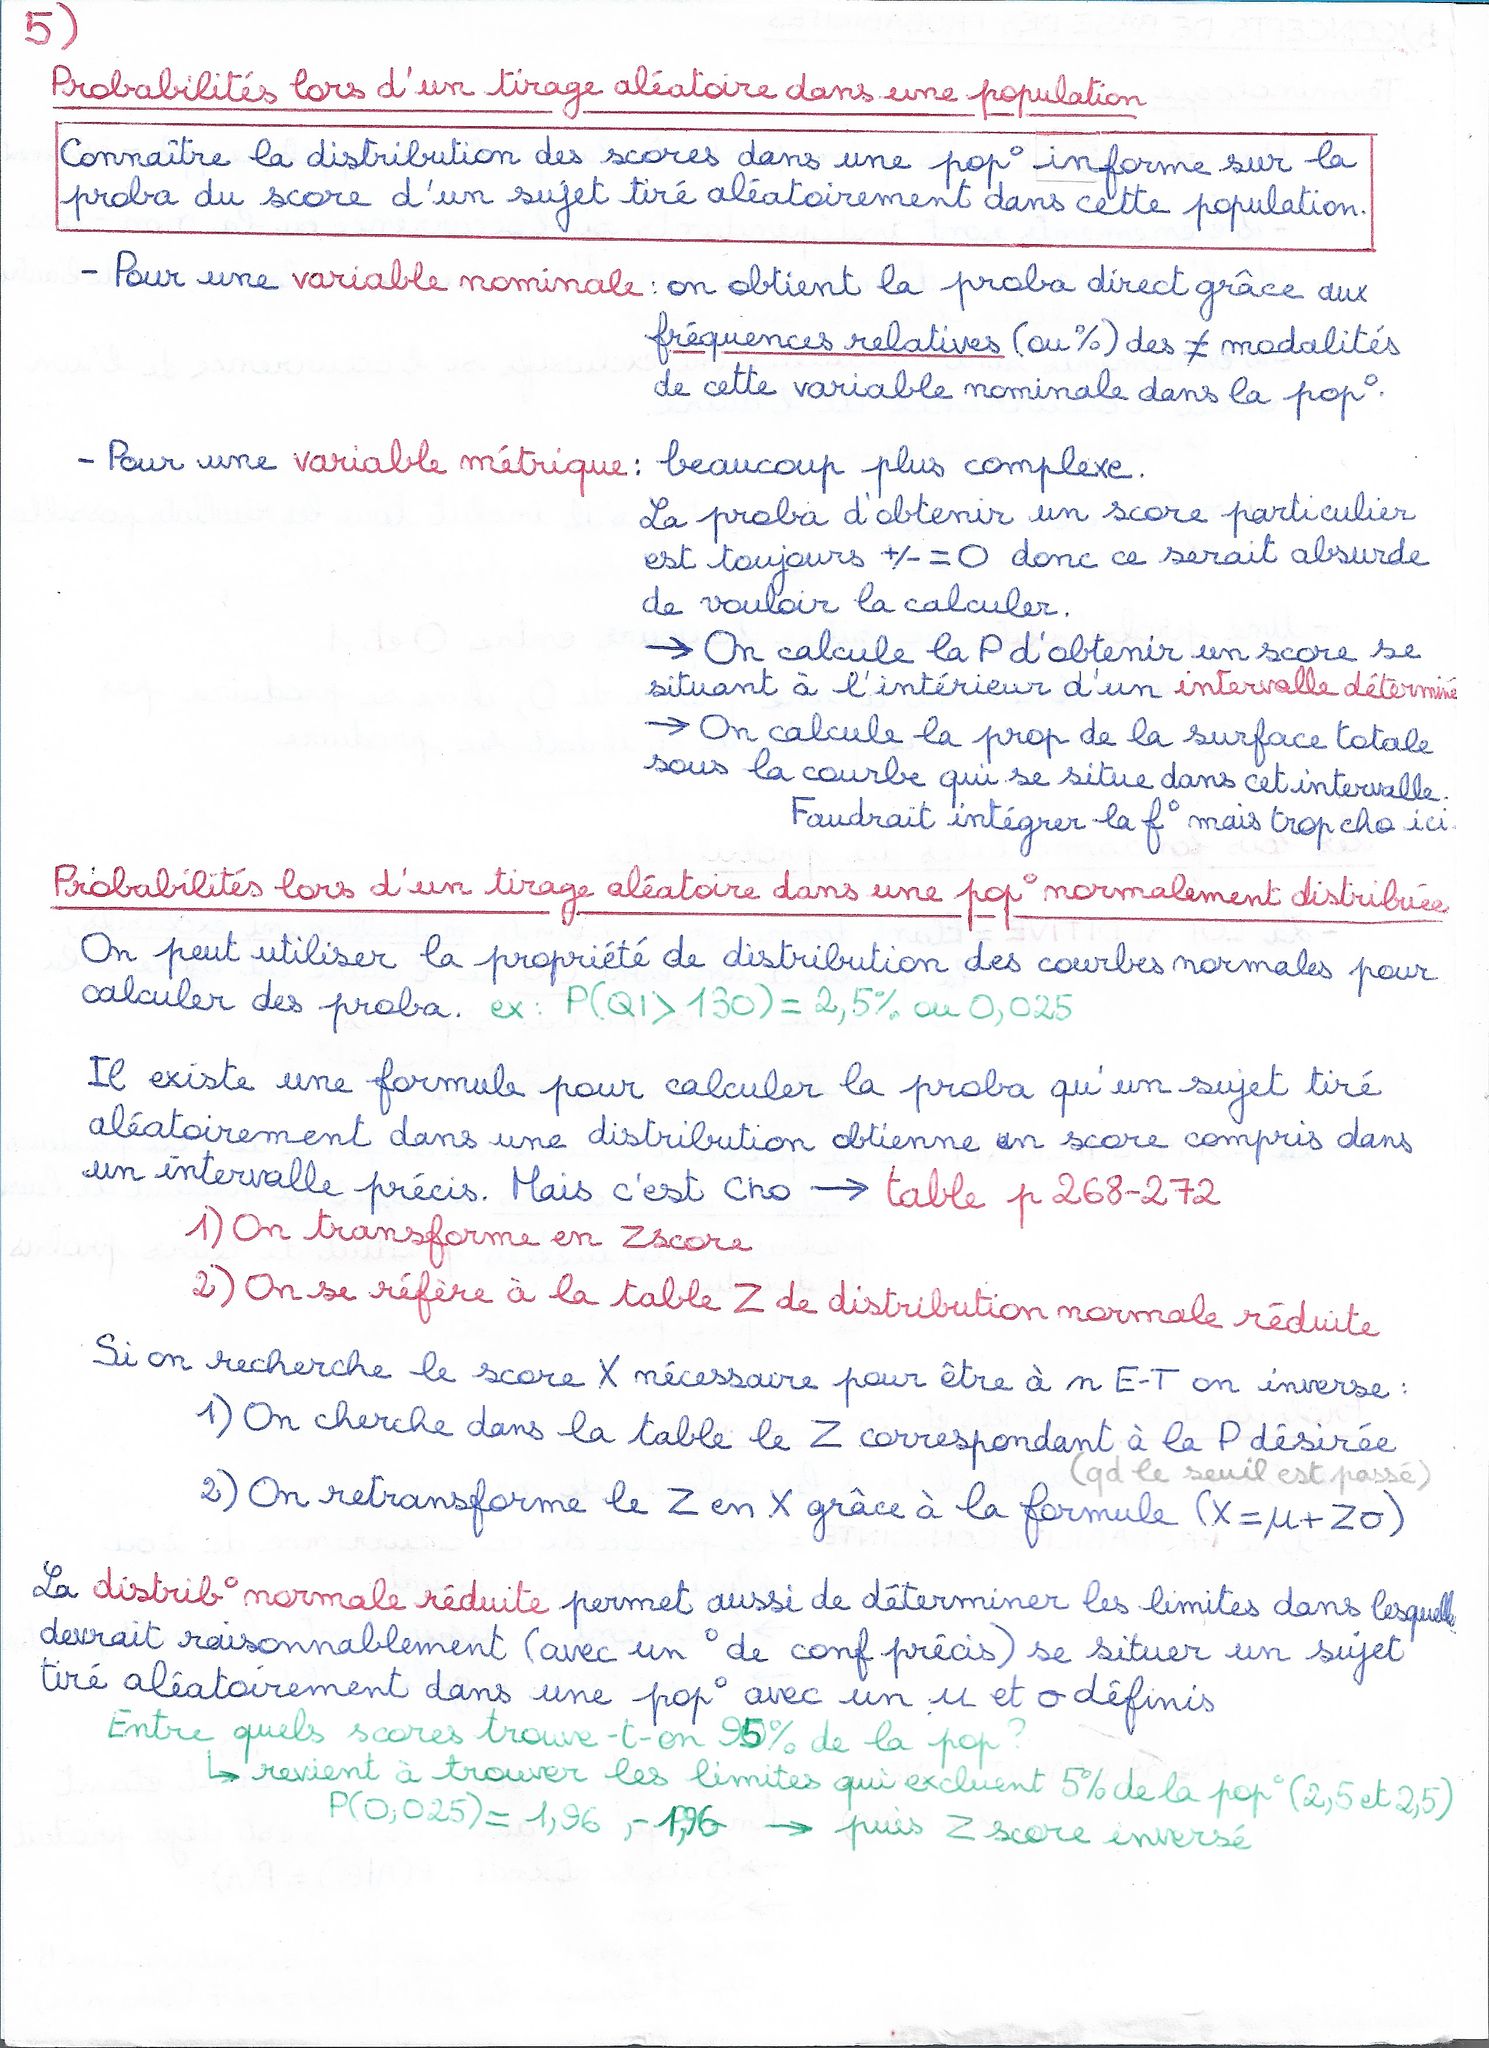 5)
Probabilités lors d'un tirage aléatoire dans une population
Connaître la distribution des scores dans une pop° informe sur la
proba du score d'un sujet tiré aléatoirement dans cette population.
- Pour une variable nominale : on obtient la proba direct grâce aux
fréquences relatives (ou %) des ≠ modalités
de cette variable nominale dans la pop°.
- Pour une variable métrique : beaucoup plus complexe.
La proba d'obtenir un score particulier
est toujours +/- = 0 donc ce serait absurde
de vouloir la calculer.
→ On calcule la P d'obtenir un score se
situant à l'intérieur d'un intervalle déterminé
→ On calcule la prop de la surface totale
sous la courbe qui se situe dans cet intervalle.
Faudrait intégrer la f° mais trop cho ici.
Probabilités lors d'un tirage aléatoire dans une pop° normalement distribuée
On peut utiliser la propriété de distribution des courbes normales pour
calculer des proba. ex : P(QI > 130) = 2,5% ou 0,025
Il existe une formule pour calculer la proba qu'un sujet tiré
aléatoirement dans une distribution obtienne un score compris dans
un intervalle précis. Mais c'est cho → table p 268-272
1) On transforme en Z score
2) On se réfère à la table Z de distribution normale réduite
Si on recherche le score X nécessaire pour être à n E-T on inverse :
1) On cherche dans la table le Z correspondant à la P désirée
(qd le seuil est passé)
2) On retransforme le Z en X grâce à la formule (X = μ + Zσ)
La distrib° normale réduite permet aussi de déterminer les limites dans lesquelles
devrait raisonnablement (avec un ° de conf précis) se situer un sujet
tiré aléatoirement dans une pop° avec un μ et σ définis
Entre quels scores trouve-t-on 95% de la pop?
↳ revient à trouver les limites qui excluent 5% de la pop° (2,5 et 2,5)
P(0,025) = 1,96 , -1,96 → puis Z score inversé